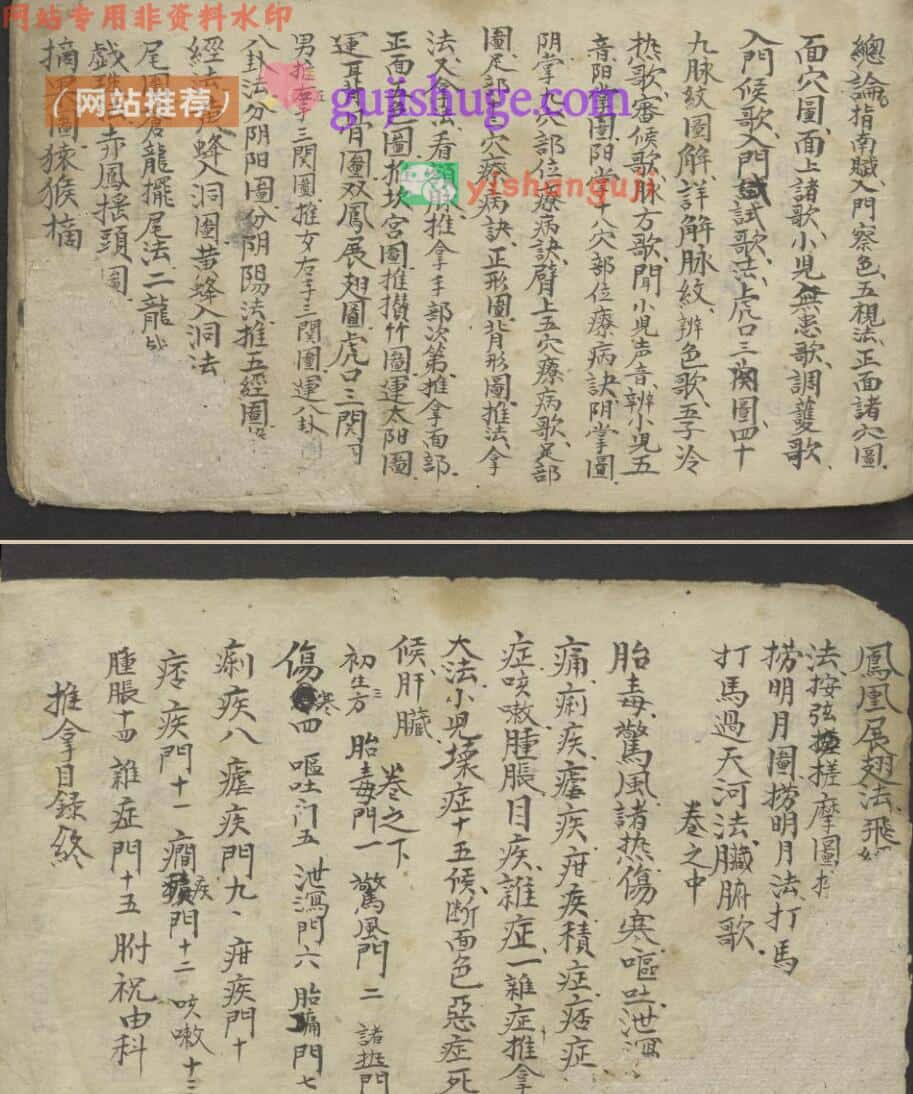 网站专用非资料水印
(网站推荐)
gujishuge.com
yishunguji
總論指南賦入門察色五視法正面諸穴圖
面穴圖面上諸歌小児無患歌調護歌
入門候歌入門試歌法上虎口三関圖四十
九脉紋圖解詳解脉紋辨色歌五子冷
热歌審候歌脉方歌聞小児声音辨小児五
音阳掌圖阳掌十八穴部位療病訣阴掌圖
阴掌九穴部位療病訣臂上五穴療病歌足部
圖足部穴療病訣正形圖背形圖推法拿
法又拿法看推拿手部次第推拿面部
正面圖推坎宮圖推攢竹圖運太阳圖
運耳背骨圖双鳳展翅圖虎口三関
男推左手三関圖推女右手三関圖運八卦
八卦法分阴阳圖分阴陽法推五經圖
經法黄蜂入洞圖黄蜂入洞法
尾圖蒼龍擺尾法二龍
戯珠法赤鳳摇頭圖
摘果圖猿猴摘
鳳凰展翅法飛
法按弦搓摩圖
捞明月圖捞明月法打馬
打馬過天河法臟腑歌
卷之中
胎毒驚風諸热傷寒嘔吐泄瀉
痛痢疾瘧疾疳疾積症痞症
症咳嗽腫脹目疾雜症一雜症推拿
大法小児壞症十五候断面色惡症死
候肝臟
卷之下
初生方三 胎毒門一 驚風門二 諸热門
三
傷寒四 嘔吐门五 泄瀉門六 胎痛門七
痢疾八 瘧疾門九、疳疾門十
痞疾門十一 癇疾門十二 咳嗽十三
腫脹十四 雜症門十五 附祝由科
推拿目録終